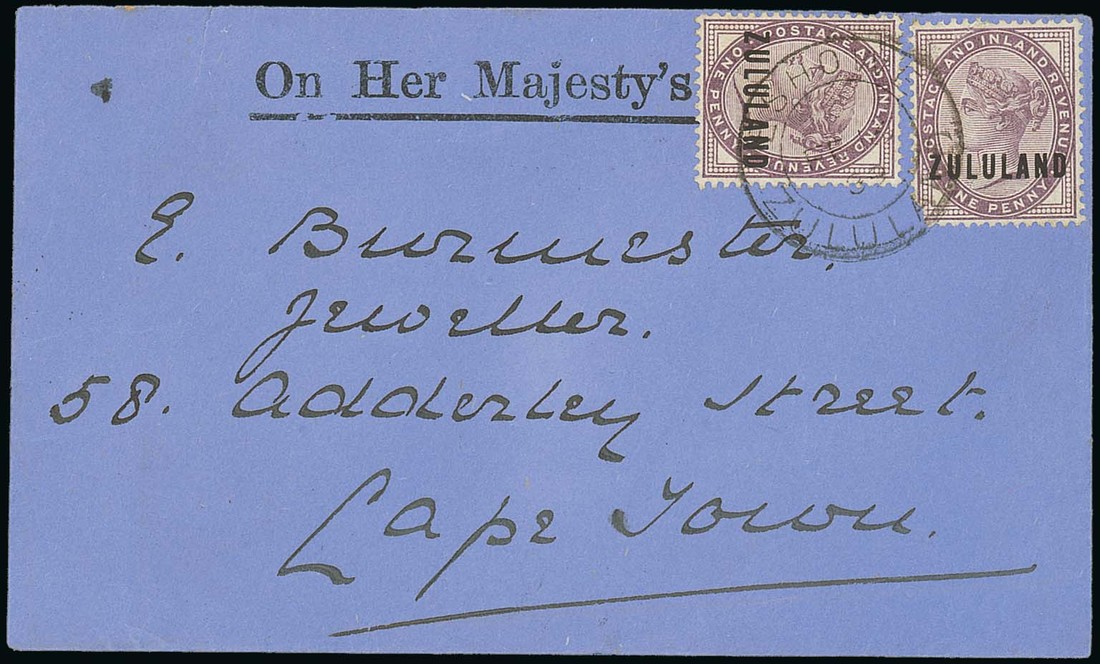 On Her Majesty's
POSTAGE AND INLAND REVENUE
ONE PENNY
ZULULAND
POSTAGE AND INLAND REVENUE
ONE PENNY
ZULULAND
E. Burmester,
Jeweller.
58. Adderley Street.
Cape Town.